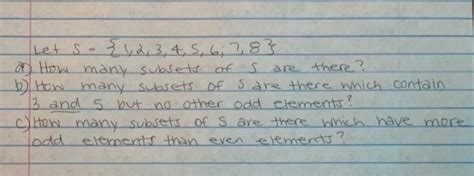 Let S = {1,2,3,4,5,6,7,8}
a) How many subsets of S are there?
b) How many subsets of S are there which contain
3 and 5 but no other odd elements?
c) How many subsets of S are there which have more
odd elements than even elements?